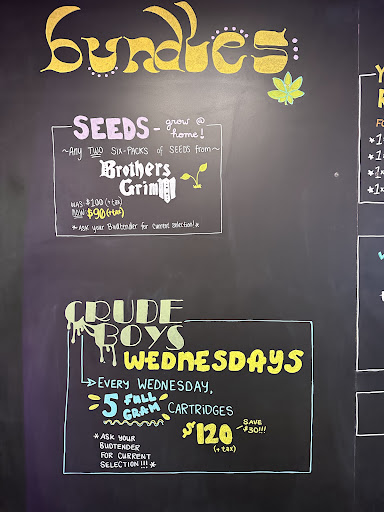 bundles:
SEEDS - grow @
home!
~Any TWO Six-Packs of SEEDS from~
Brothers
Grimm
WAS $100 (+tax)
NOW $90 (+tax)
*Ask your Budtender for current selection!*
CRUDE
BOYS
WEDNESDAYS
EVERY WEDNESDAY,
5 FULL
GRAM CARTRIDGES
$120
(+tax)
SAVE
$30!!!
*ASK YOUR
BUDTENDER
FOR CURRENT
SELECTION!!!*
Y
R
FO
*1
*1
*1x
*1x